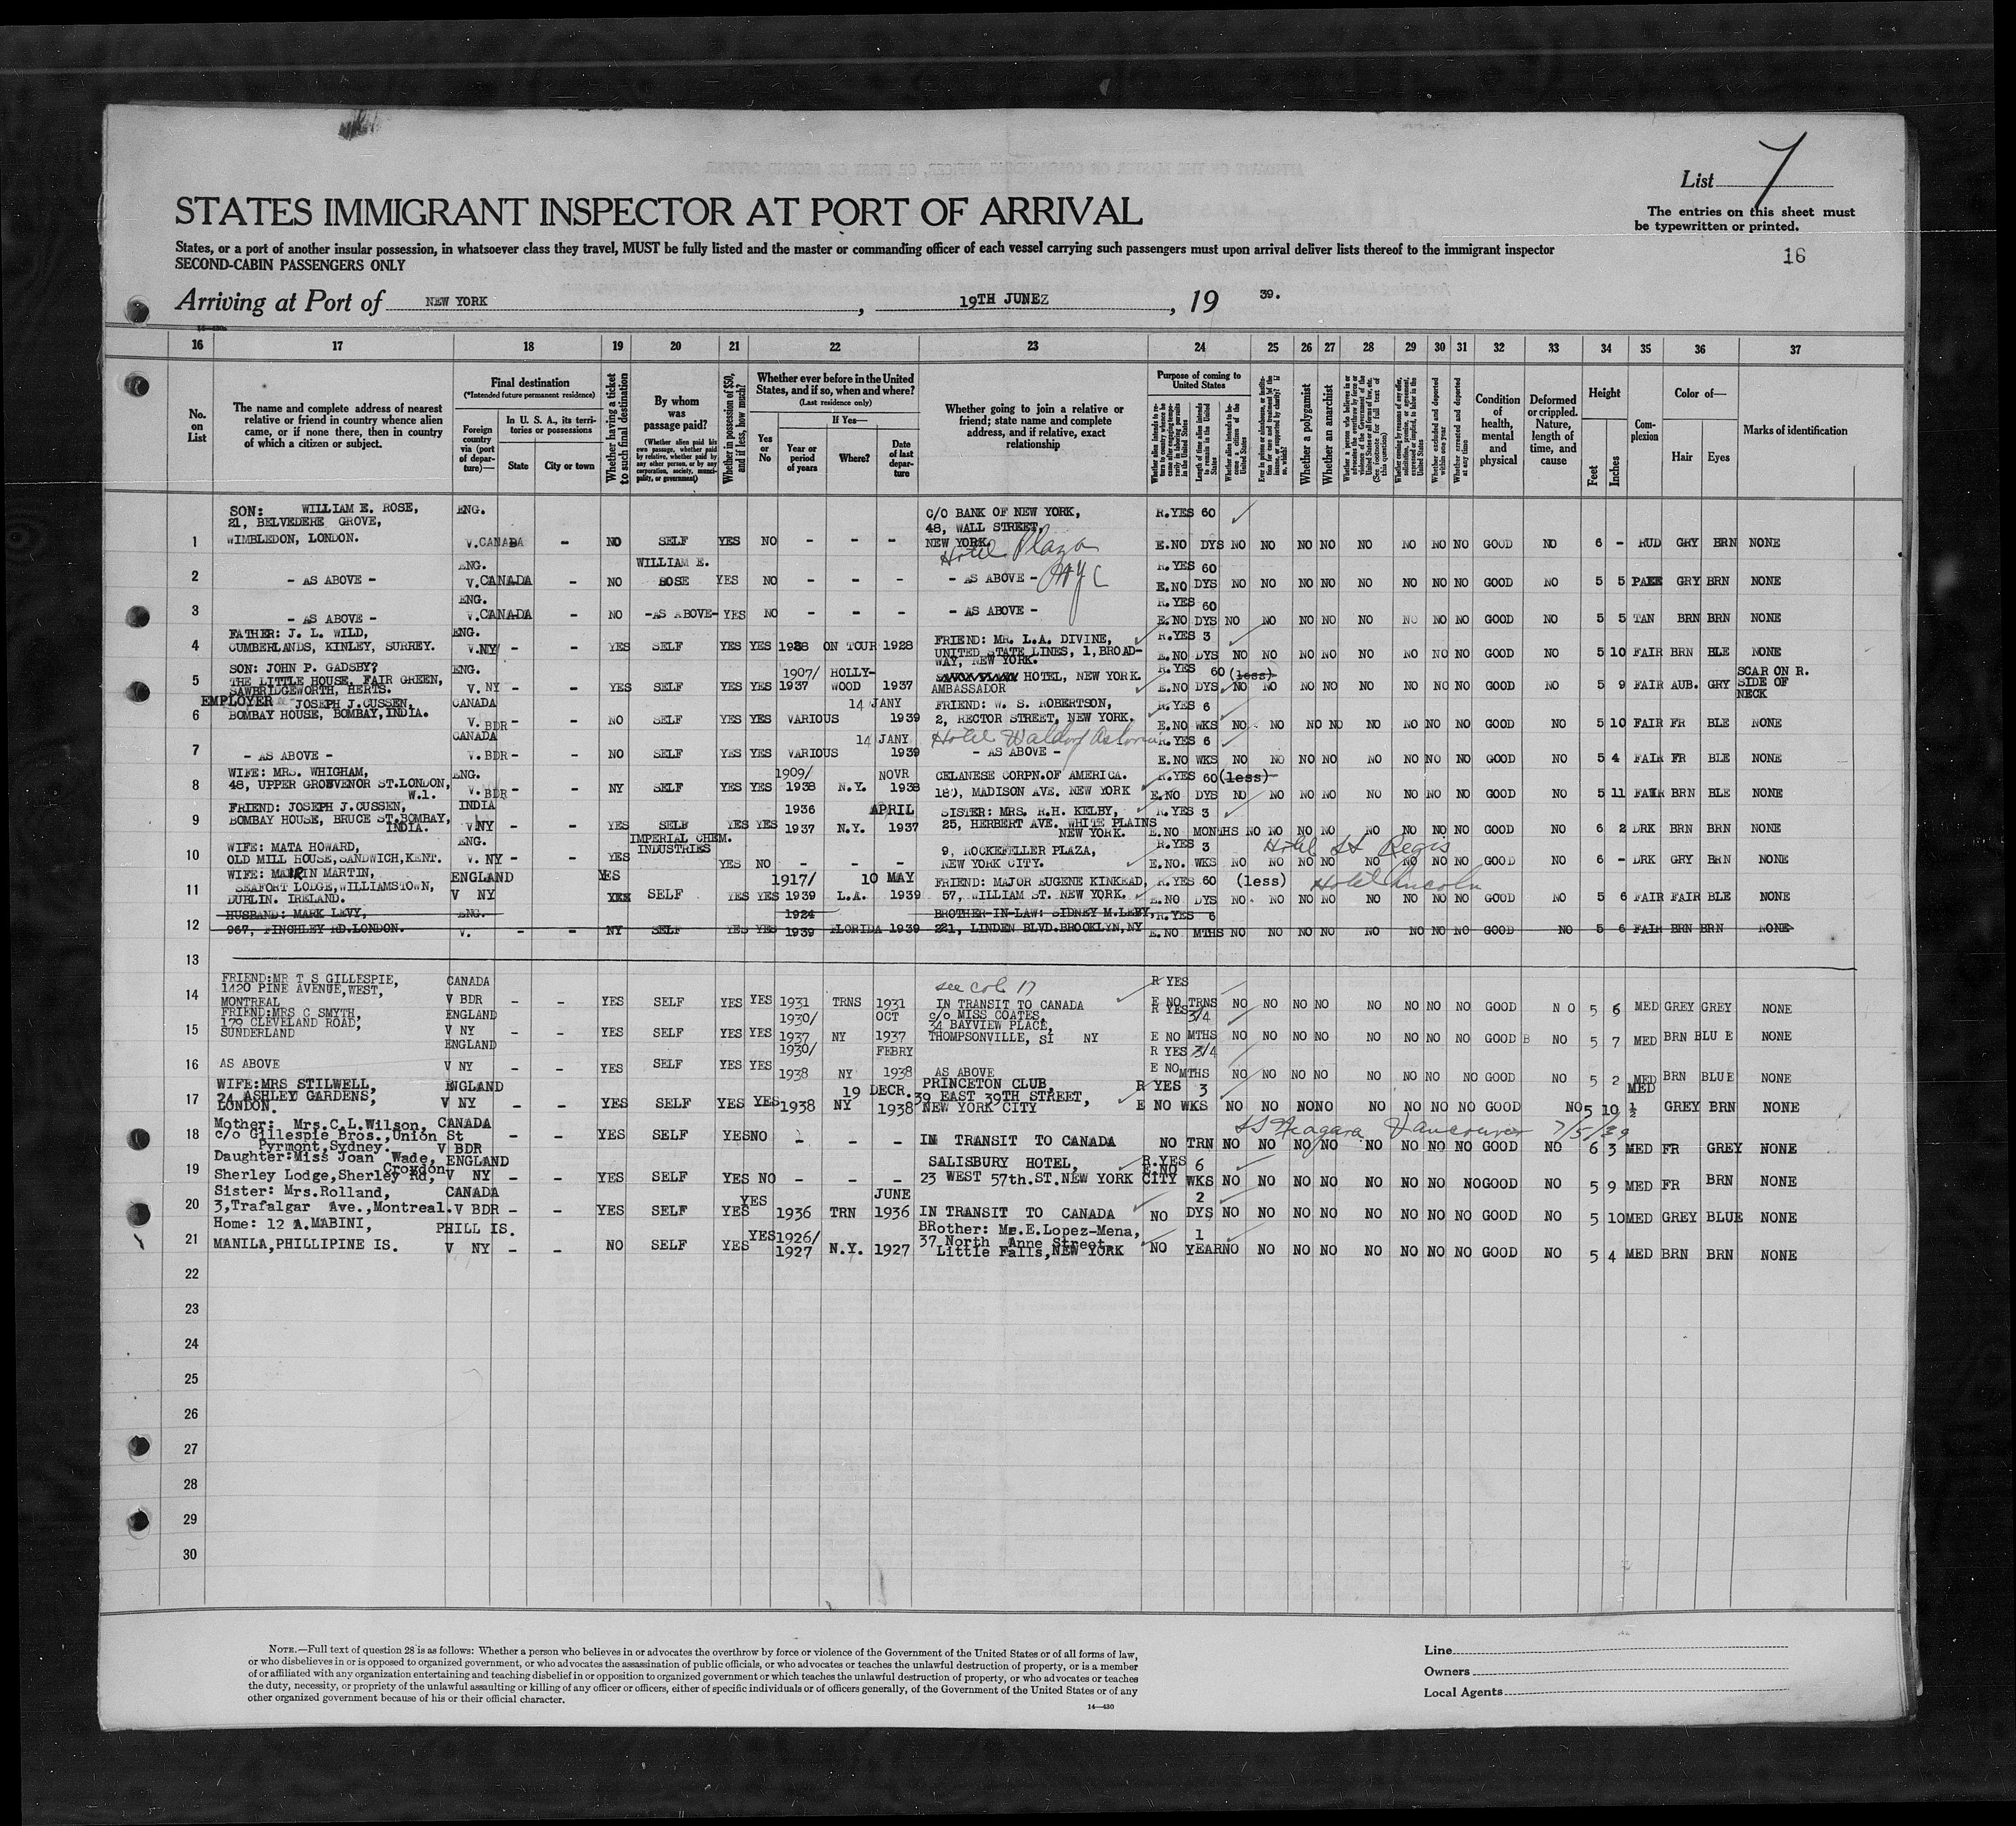 List 7
STATES IMMIGRANT INSPECTOR AT PORT OF ARRIVAL
The entries on this sheet must
be typewritten or printed.
States, or a port of another insular possession, in whatsoever class they travel, MUST be fully listed and the master or commanding officer of each vessel carrying such passengers must upon arrival deliver lists thereof to the immigrant inspector
SECOND-CABIN PASSENGERS ONLY
16
Arriving at Port of NEW YORK, 19TH JUNEZ, 19 39.
16 17 18 19 20 21 22 23 24 25 26 27 28 29 30 31 32 33 34 35 36 37
No. on List
The name and complete address of nearest relative or friend in country whence alien came, or if none there, then in country of which a citizen or subject.
Final destination
(*Intended future permanent residence)
Foreign country via (port of departure)—
In U. S. A., its territories or possessions
State
City or town
Whether having a ticket to such final destination
By whom was passage paid?
(Whether alien paid his own passage, whether paid by relative, whether paid by any other person, or by any corporation, society, municipality, or government)
Whether in possession of $50, and if less, how much?
Whether ever before in the United States, and if so, when and where?
(Last residence only)
Yes or No
If Yes—
Year or period of years
Where?
Date of last departure
Whether going to join a relative or friend; state name and complete address, and if relative, exact relationship
Purpose of coming to United States
Whether a polygamist
Whether an anarchist
Condition of health, mental and physical
Deformed or crippled. Nature, length of time, and cause
Height
Feet
Inches
Complexion
Color of—
Hair
Eyes
Marks of identification
1 SON: WILLIAM E. ROSE, 21, BELVEDERE GROVE, WIMBLEDON, LONDON. ENG. V.CANADA - NO SELF YES NO - - - C/O BANK OF NEW YORK, 48, WALL STREET, NEW YORK. Hotel Plaza NYC R.YES 60 E.NO DYS NO NO NO NO NO NO NO NO GOOD NO 6 - RUD GRY BRN NONE
2 - AS ABOVE - ENG. V.CANADA - NO WILLIAM E. ROSE YES NO - - - - AS ABOVE - R.YES 60 E.NO DYS NO NO NO NO NO NO NO NO GOOD NO 5 5 PALE GRY BRN NONE
3 - AS ABOVE - ENG. V.CANADA - NO -AS ABOVE- YES NO - - - - AS ABOVE - R.YES 60 E.NO DYS NO NO NO NO NO NO NO NO GOOD NO 5 5 TAN BRN BRN NONE
4 FATHER: J. L. WILD, CUMBERLANDS, KINLEY, SURREY. ENG. V.NY - - YES SELF YES YES 1928 ON TOUR 1928 FRIEND: MR. L.A. DIVINE, UNITED STATE LINES, 1, BROADWAY, NEW YORK. R.YES 3 E.NO DYS NO NO NO NO NO NO NO NO GOOD NO 5 10 FAIR BRN BLE NONE
5 SON: JOHN P. GADSBY? THE LITTLE HOUSE, FAIR GREEN, SAWBRIDGEWORTH, HERTS. ENG. V. NY - - YES SELF YES YES 1907/ 1937 HOLLYWOOD 1937 HOTEL, NEW YORK. AMBASSADOR R.YES 60 (less) E.NO DYS NO NO NO NO NO NO NO NO GOOD NO 5 9 FAIR AUB. GRY SCAR ON R. SIDE OF NECK
6 EMPLOYER JOSEPH J.CUSSEN, BOMBAY HOUSE, BOMBAY, INDIA. CANADA V. BDR - - NO SELF YES YES VARIOUS 14 JANY 1939 FRIEND: W. S. ROBERTSON, 2, RECTOR STREET, NEW YORK. R.YES 6 E.NO WKS NO NO NO NO NO NO NO NO GOOD NO 5 10 FAIR FR BLE NONE
7 - AS ABOVE - CANADA V. BDR - - NO SELF YES YES VARIOUS 14 JANY 1939 Hotel Waldorf Astoria - AS ABOVE - R.YES 6 E.NO WKS NO NO NO NO NO NO NO NO GOOD NO 5 4 FAIR FR BLE NONE
8 WIFE: MRS. WHIGHAM, 48, UPPER GROSVENOR ST.LONDON, W.1. ENG. V. BDR - - NY SELF YES YES 1909/ 1938 N.Y. NOVR 1938 CELANESE CORPN.OF AMERICA. 180, MADISON AVE. NEW YORK R.YES 60 (less) E.NO DYS NO NO NO NO NO NO NO NO GOOD NO 5 11 FAIR BRN BLE NONE
9 FRIEND: JOSEPH J.CUSSEN, BOMBAY HOUSE, BRUCE ST.BOMBAY, INDIA. INDIA V.NY - - YES SELF YES YES 1936 1937 N.Y. APRIL 1937 SISTER: MRS. R.H. KELBY, 25, HERBERT AVE. WHITE PLAINS NEW YORK. R.YES 3 E.NO MONTHS NO NO NO NO NO NO NO NO GOOD NO 6 2 DRK BRN BRN NONE
10 WIFE: MATA HOWARD, OLD MILL HOUSE, SANDWICH, KENT. ENG. V. NY - - YES IMPERIAL CHEM. INDUSTRIES YES NO 9, ROCKEFELLER PLAZA, NEW YORK CITY. R.YES 3 Hotel St Regis E.NO. WKS NO NO NO NO NO NO NO NO GOOD NO 6 - DRK GRY BRN NONE
11 WIFE: MARTIN, SEAFORT LODGE, WILLIAMSTOWN, DUBLIN. IRELAND. ENGLAND V NY YES YES SELF YES YES 1917/ 1939 L.A. 10 MAY 1939 FRIEND: MAJOR EUGENE KINKEAD, 57, WILLIAM ST. NEW YORK. R.YES 60 (less) Hotel Lincoln E.NO DYS NO NO NO NO NO NO NO NO GOOD NO 5 6 FAIR FAIR BLE NONE
12 HUSBAND: MARK LEVY, 967, FINCHLEY RD.LONDON. ENG. V. - - NY SELF YES YES 1924 1939 FLORIDA 1939 BROTHER-IN-LAW: SIDNEY M.LEBY, 221, LINDEN BLVD.BROOKLYN, NY R.YES 6 E.NO MTHS NO NO NO NO NO NO NO NO GOOD NO 5 6 FAIR BRN BRN NONE
13
14 FRIEND:MR T S GILLESPIE, 1420 PINE AVENUE, WEST, MONTREAL CANADA V BDR - - YES SELF YES YES 1931 TRNS 1931 see col 17 IN TRANSIT TO CANADA R YES E NO TRNS NO NO NO NO NO NO NO NO GOOD NO 5 6 MED GREY GREY NONE
15 FRIEND:MRS C SMYTH, 179 CLEVELAND ROAD, SUNDERLAND ENGLAND V NY - - YES SELF YES YES 1930/ 1937 NY OCT 1937 c/o MISS COATES, 34 BAYVIEW PLACE, THOMPSONVILLE, SI NY R YES 3/4 E NO MTHS NO NO NO NO NO NO NO NO GOOD B NO 5 7 MED BRN BLUE NONE
16 AS ABOVE ENGLAND V NY YES SELF YES YES 1930/ 1938 NY FEBRY 1938 AS ABOVE R YES 3/4 E NO MTHS NO NO NO NO NO NO NO NO GOOD NO 5 2 MED BRN BLUE NONE
17 WIFE:MRS STILWELL, 24 ASHLEY GARDENS, LONDON. ENGLAND V NY - - YES SELF YES YES 1938 NY 19 DECR. 1938 PRINCETON CLUB, 39 EAST 39TH STREET, NEW YORK CITY R YES 3 E NO WKS NO NO NO NO NO NO NO NO GOOD NO 5 10 ½ MED GREY BRN NONE
18 Mother: Mrs.C.L.Wilson, c/o Gillespie Bros.,Union St Pyrmont,Sydney. CANADA V BDR - - YES SELF YES NO - - - IN TRANSIT TO CANADA SS Niagara Vancouver 7/5/39 NO TRN NO NO NO NO NO NO NO NO GOOD NO 6 3 MED FR GREY NONE
19 Daughter:Miss Joan Wade, Sherley Lodge,Sherley Rd, Croydon ENGLAND V NY - - YES SELF YES NO - - - SALISBURY HOTEL, 23 WEST 57th.ST.NEW YORK CITY R.YES E.NO 6 WKS NO NO NO NO NO NO NO NO GOOD NO 5 9 MED FR BRN NONE
20 Sister: Mrs.Rolland, 3,Trafalgar Ave.,Montreal. CANADA V BDR - - YES SELF YES YES 1936 TRN JUNE 1936 IN TRANSIT TO CANADA NO 2 DYS NO NO NO NO NO NO NO NO GOOD NO 5 10 MED GREY BLUE NONE
21 Home: 12 A.MABINI, MANILA,PHILLIPINE IS. PHILL IS. V NY - - NO SELF YES YES 1926/ 1927 N.Y. 1927 BRother: Mr.E.Lopez-Mena, 37 North Anne Street Little Falls,NEW YORK NO 1 YEAR NO NO NO NO NO NO NO NO GOOD NO 5 4 MED BRN BRN NONE
22
23
24
25
26
27
28
29
30
NOTE.—Full text of question 28 is as follows: Whether a person who believes in or advocates the overthrow by force or violence of the Government of the United States or of all forms of law,
or who disbelieves in or is opposed to organized government, or who advocates the assassination of public officials, or who advocates or teaches the unlawful destruction of property, or is a member
of or affiliated with any organization entertaining and teaching disbelief in or opposition to organized government or which teaches the unlawful destruction of property, or who advocates or teaches
the duty, necessity, or propriety of the unlawful assaulting or killing of any officer or officers, either of specific individuals or of officers generally, of the Government of the United States or of any
other organized government because of his or their official character.
14—430
Line
Owners
Local Agents